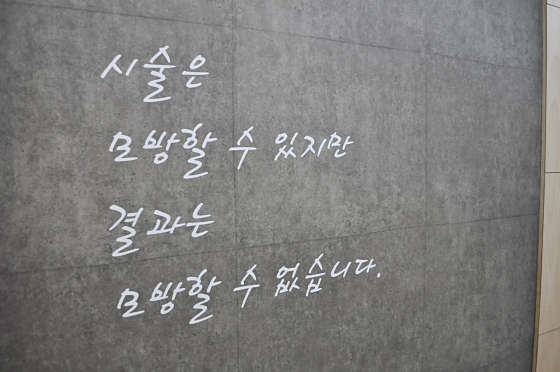 시술은
모방할 수 있지만
결과는
모방할 수 없습니다.